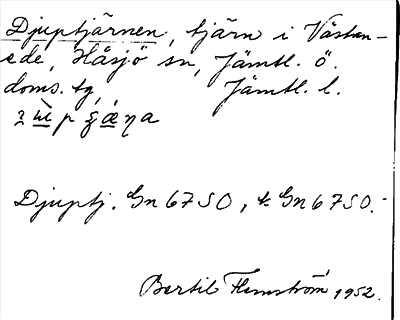 Djuptjärnen, tjärn i Västan-
ede, Håsjö sn, Jämtl. ö.
doms. tg, Jämtl. l.
Djuptj. Gn 67 SO, k Gn 67 SO.
Bertil Flemström 1952.